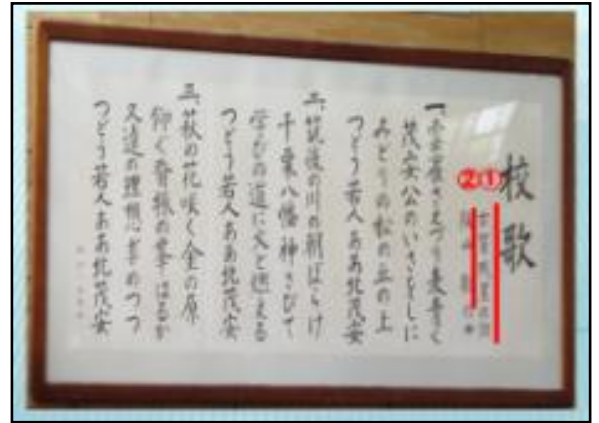 校歌
①
②
一、雲雀さえづり麦青く
茂安公のいさをしに
みどりの松の丘の上
つどう若人ああ北茂安
二、筑後の川の朝ぼらけ
千栗八幡神さびて
学びの道に
つどう若人ああ北茂安
三、萩の花咲く金の原
仰ぐ脊振の峯はるか
久遠の理想
つどう若人ああ北茂安